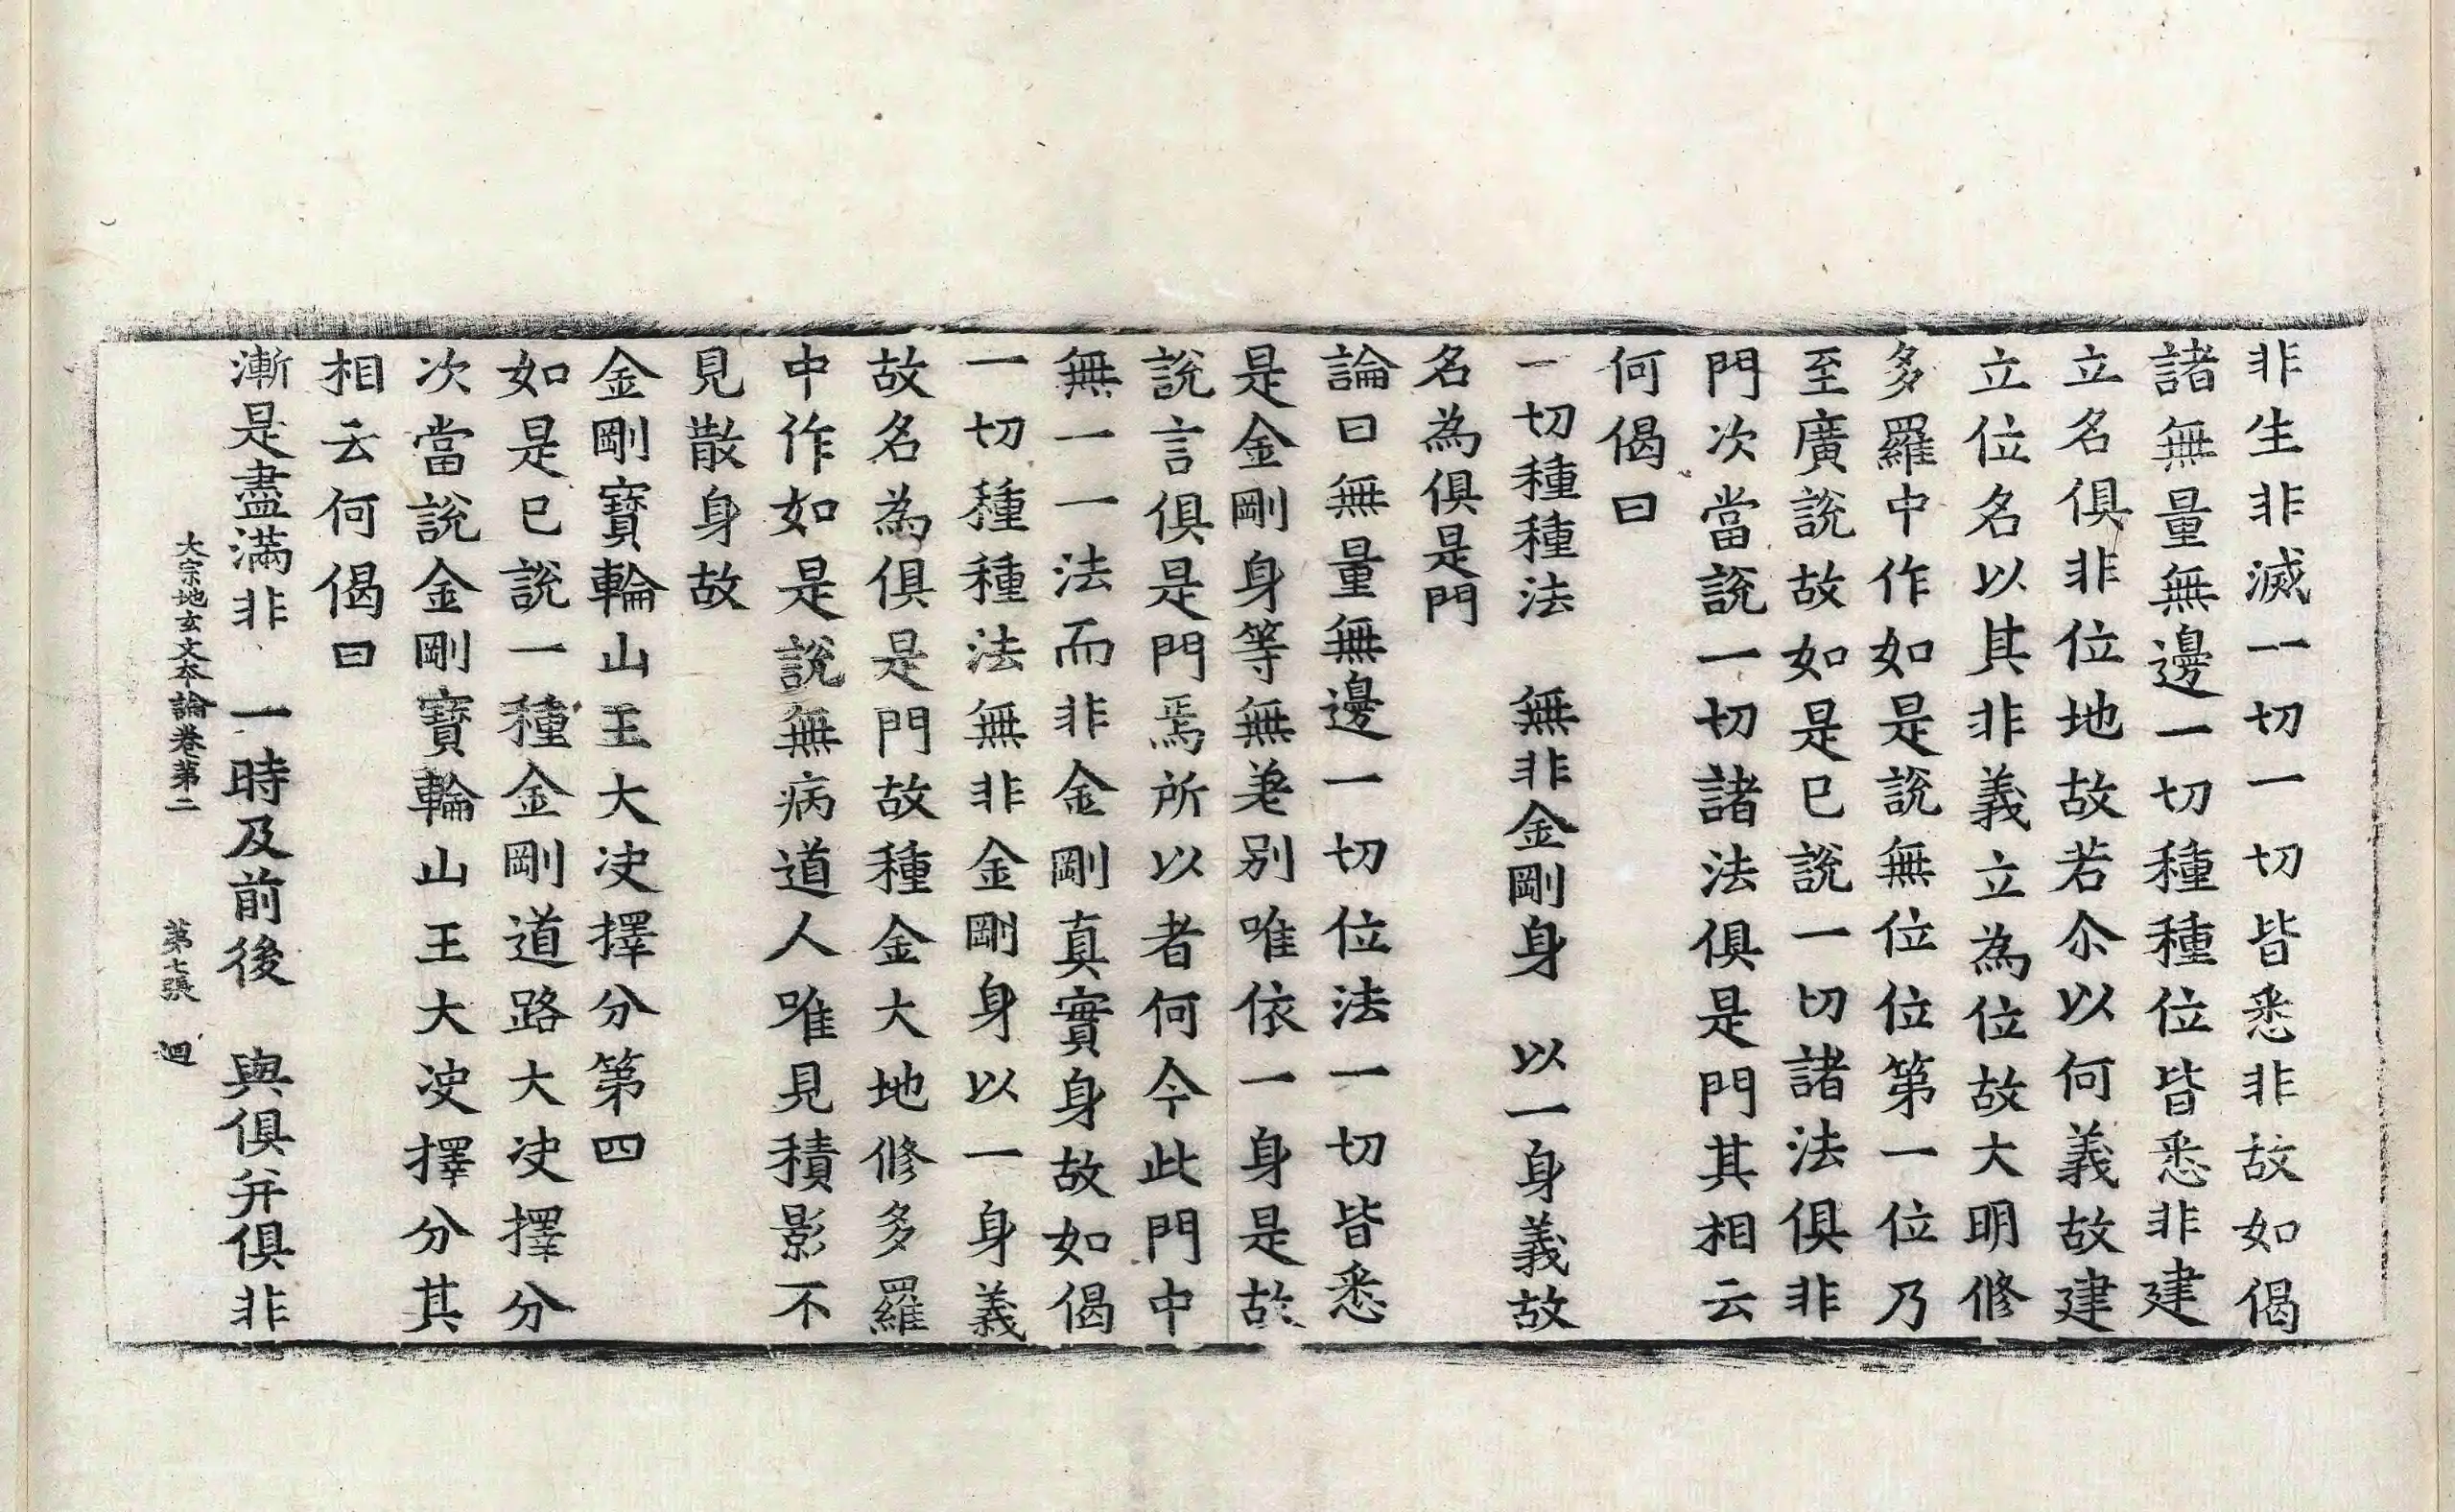 非生非滅一切一切皆悉非故如偈
諸無量無邊一切種種位皆悉非建
立名俱非位地故若尒以何義故建
立位名以其非義立為位故大明修
多羅中作如是說無位位第一位乃
至廣說故如是已說一切諸法俱非
門次當說一切諸法俱是門其相云
何偈曰
一切種種法　無非金剛身　以一身義故
名為俱是門
論曰無量無邊一切位法一切皆悉
是金剛身等無差別唯依一身是故
說言俱是門焉所以者何今此門中
無一一法而非金剛真實身故如偈
一切種種法無非金剛身以一身義
故名為俱是門故種金大地修多羅
中作如是說無病道人唯見積影不
見散身故
金剛寶輪山王大決擇分第四
如是已說一種金剛道路大決擇分
次當說金剛寶輪山王大決擇分其
相云何偈曰
漸是盡滿非　一時及前後　與俱并俱非
大宗地玄文本論卷第二　第七張　迴